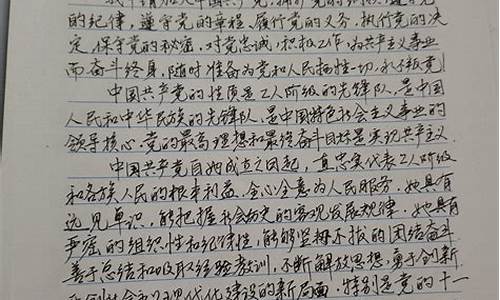 的纪律，遵守党的章程，履行党的义务，执行党的决
定，保守党的秘密，对党忠诚，积极工作，为共产主义事业
而奋斗终身，随时准备为党和人民牺牲一切，永不叛党
中国共产党的性质是工人阶级的先锋队，是中国
人民和中华民族的先锋队，是中国特色社会主义事业的
领导核心，党的最高理想和最终奋斗目标是实现共产主义。
中国共产党自她成立之日起，直忠实代表工人阶级
和各族人民的根本利益，全心全意为人民服务。她具有
远见卓识，能把握社会历史的客观发展规律。她具有
严密的组织性和纪律性，能够坚持不拔的团结奋斗
善于总结和吸取经验教训，不断解放思想，勇于创新
现代化建设的新局面，特别是党的十一